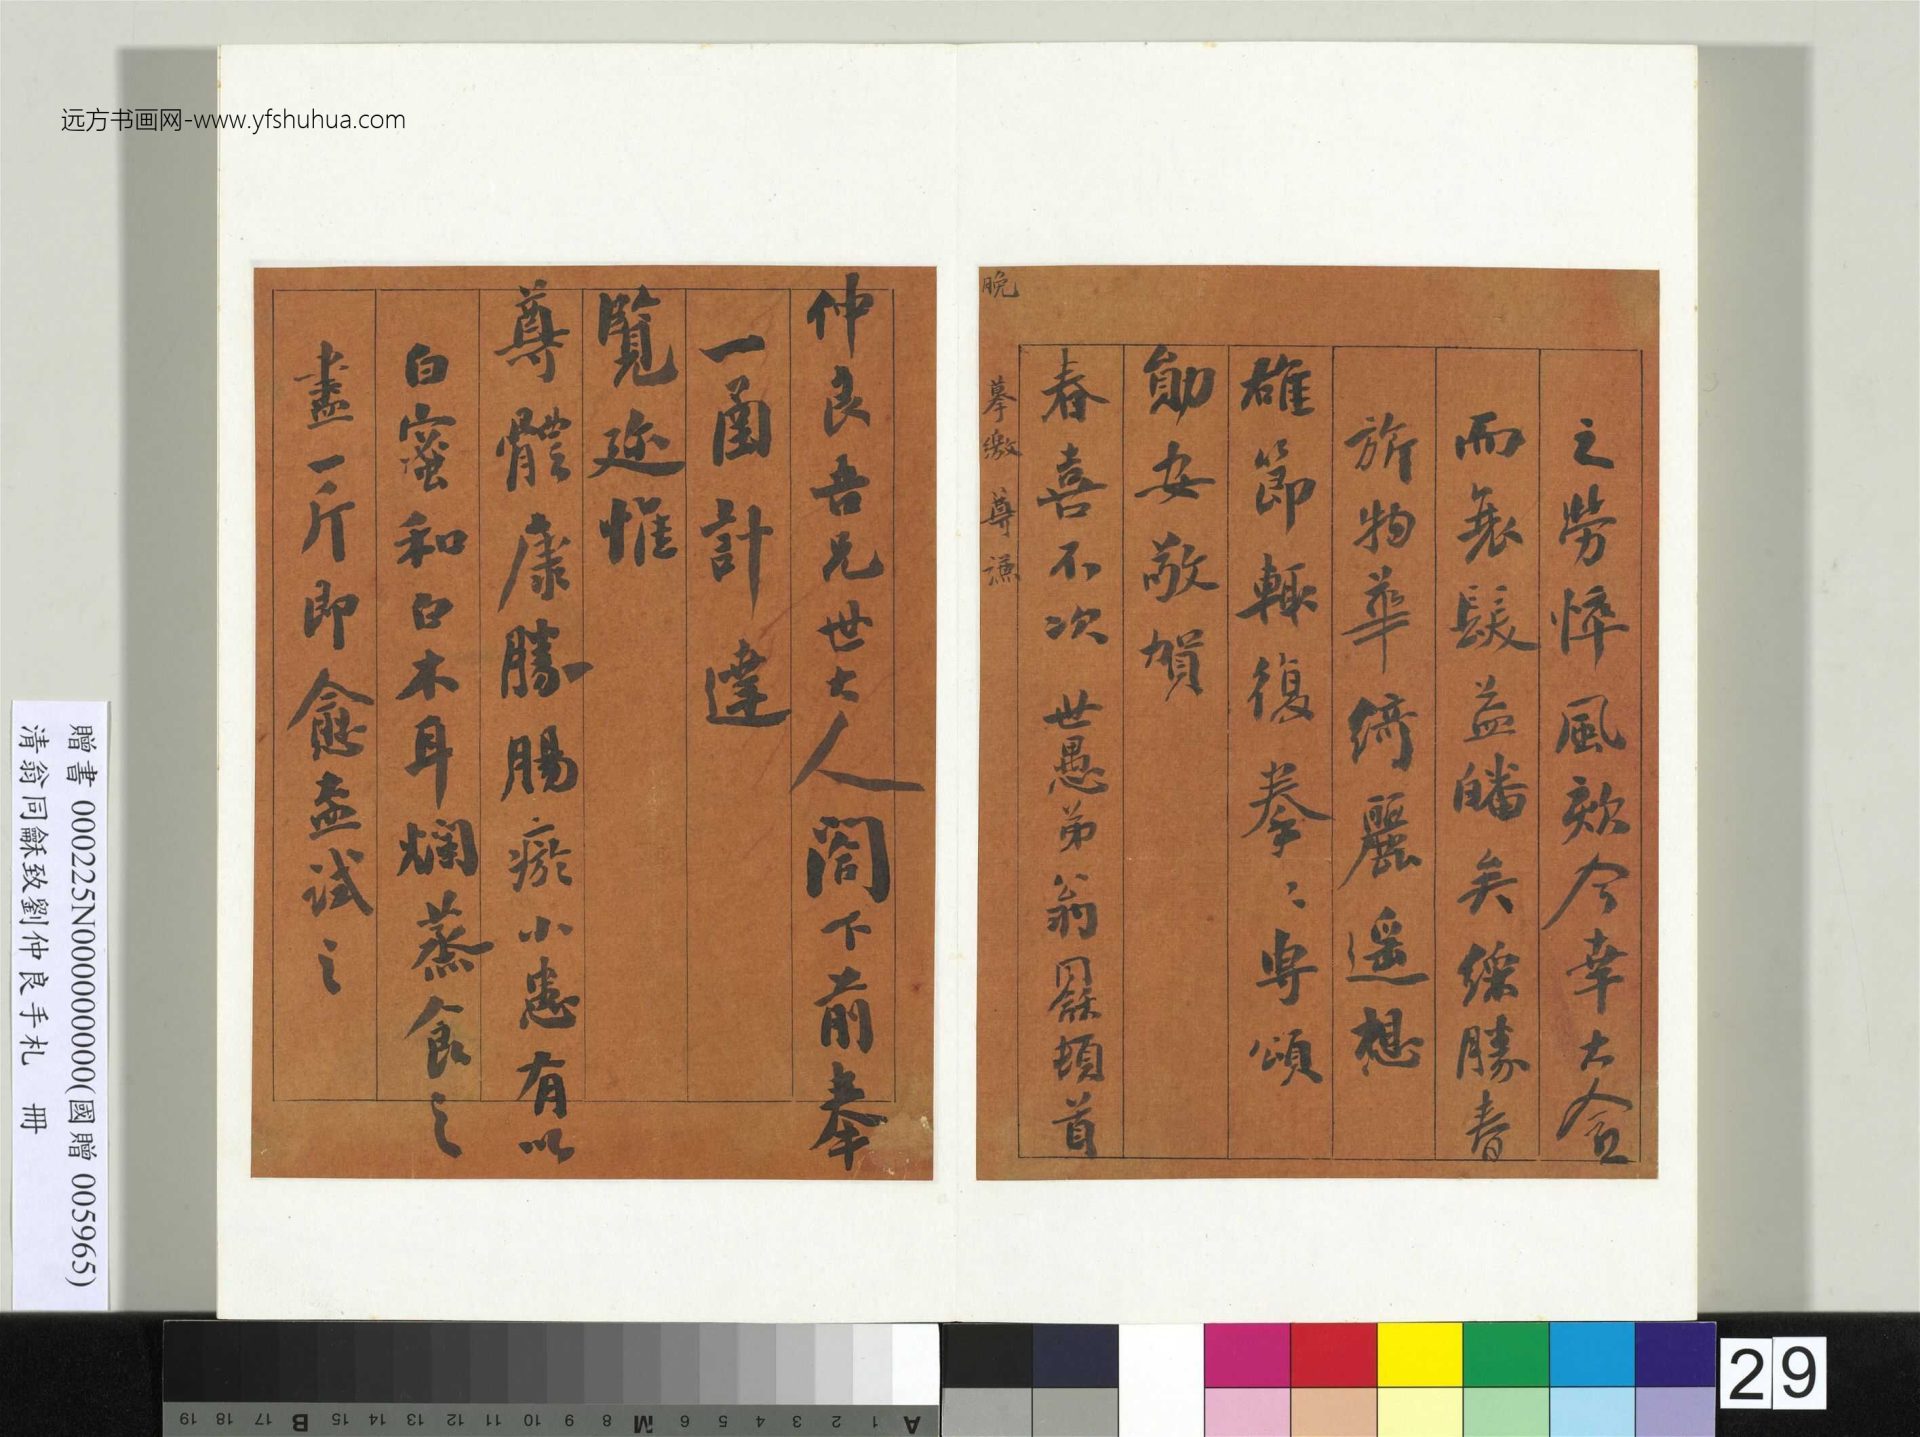 远方书画网-www.yfshuhua.com
之勞悴風欬今幸大愈
而衰髮益皤矣緜勝春
旂物華綺麗遥想
雄節輒復拳〻專頌
勛安敬賀
春喜不次 世愚弟翁同龢頓首
晚
摹繳 尊謙
仲良吾兄世大人閣下前奉
一函計達
覽邇惟
尊體康勝腸瘀小恙有以
白蜜和白木耳爛蒸食之
盡一斤即愈盍試之
贈書 000225N000000000(國贈 005965)
清翁同龢致劉仲良手札 冊
29
A 1 2 3 4 5 6 M 8 9 10 11 12 13 14 15 B 17 18 19